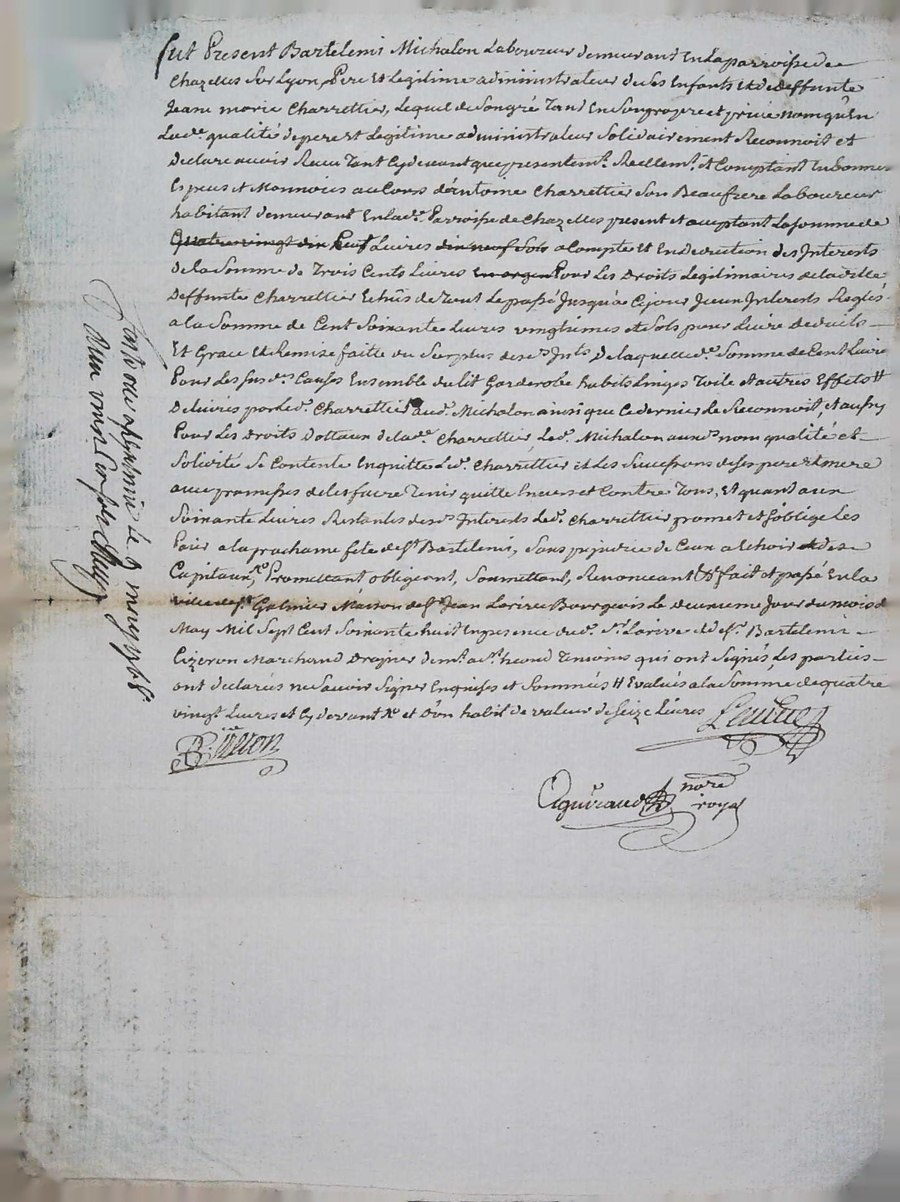 fut Present Bartelemi Michalon Laboureur demeurant En la parroisse de
Chazelles sur Lyon, Pere Et Legitime administrateur de ses Enfants Et de deffunte
Jeane marie Charrettier, Lequel de son gré Tant En son propre et privé nom qu'En
lad.e qualité de pere et Legitime administrateur solidairement Reconnoit et
Declare avoir Receu Tant Cy devant que presentem.t Reellem.t et Comptant En bonnes
Especes et Monnoies au Cours d'antome Charrettier son Beaufrere Laboureur
habitant demeurant En lad.e Parroisse de Chazelles present et aceptant La somme de
Quatre vingt dix huit Livres dix neuf sols a Compte et En deduction des Interests
de la Somme de Trois Cents Livres En argent Pour Les Droits Legitimaires de laditte
Deffunte Charrettier Echûs de tout Le passé Jusqu'a Ce jour Iceux Interests Reglés
a la Somme de Cent Soixante Livres vingtiemes et sols pour Livre deduits
Et Grace Et Remise faitte du Surplus desd.s Ints De laquelle d.e Somme de Cent Livres
Pour Les susd.es Causes Ensemble du lit Garderobe habits Linges Toile et autres Effets #
Delivrés par led.t Charrettier aud.t Michalon ainsi que Ce dernier Le Reconnoit, et aussy
Pour Les Droits Dottaux de lad.e Charrettier Led.t Michalon auxd.s nom qualité et
Solidité Se Contente En quitte Led.t Charrettier et Les Successions de ses pere et mere
avec promesses de les faire Tenir quitte Envers et Contre Tous, Et quant aux
Soixante Livres Restantes desd.s Interests Led.t Charrettier promet et s'oblige Les
Paier a la prochaine fete de S.t Bartelemi, Sans prejudice de Ceux a Echoir et des
Capitaux, Promettant obligeant, Soumettant, Renonceant &.a fait et passé En la
ville de S.t Galmier Maison de S.r Jean Larive Bourgeois Le deuxieme Jour du mois de
May Mil Sept Cent Soixante huit En presence dud. S.r Larive et de S.r Bartelemi
Cizeron Marchand Drapier dem.t a S.t heand Temoins qui ont Signés, Les parties
ont declarées ne Savoir Signer Enquises et Sommées # Evalués a la Somme de quatre
vingt Livres et Cy devant &.a et d'un habit de valeur de Seize Livres
Larive
B: Cizeron
Aguiraud nore
royal
Controllé a St galmier le 9 may 1768